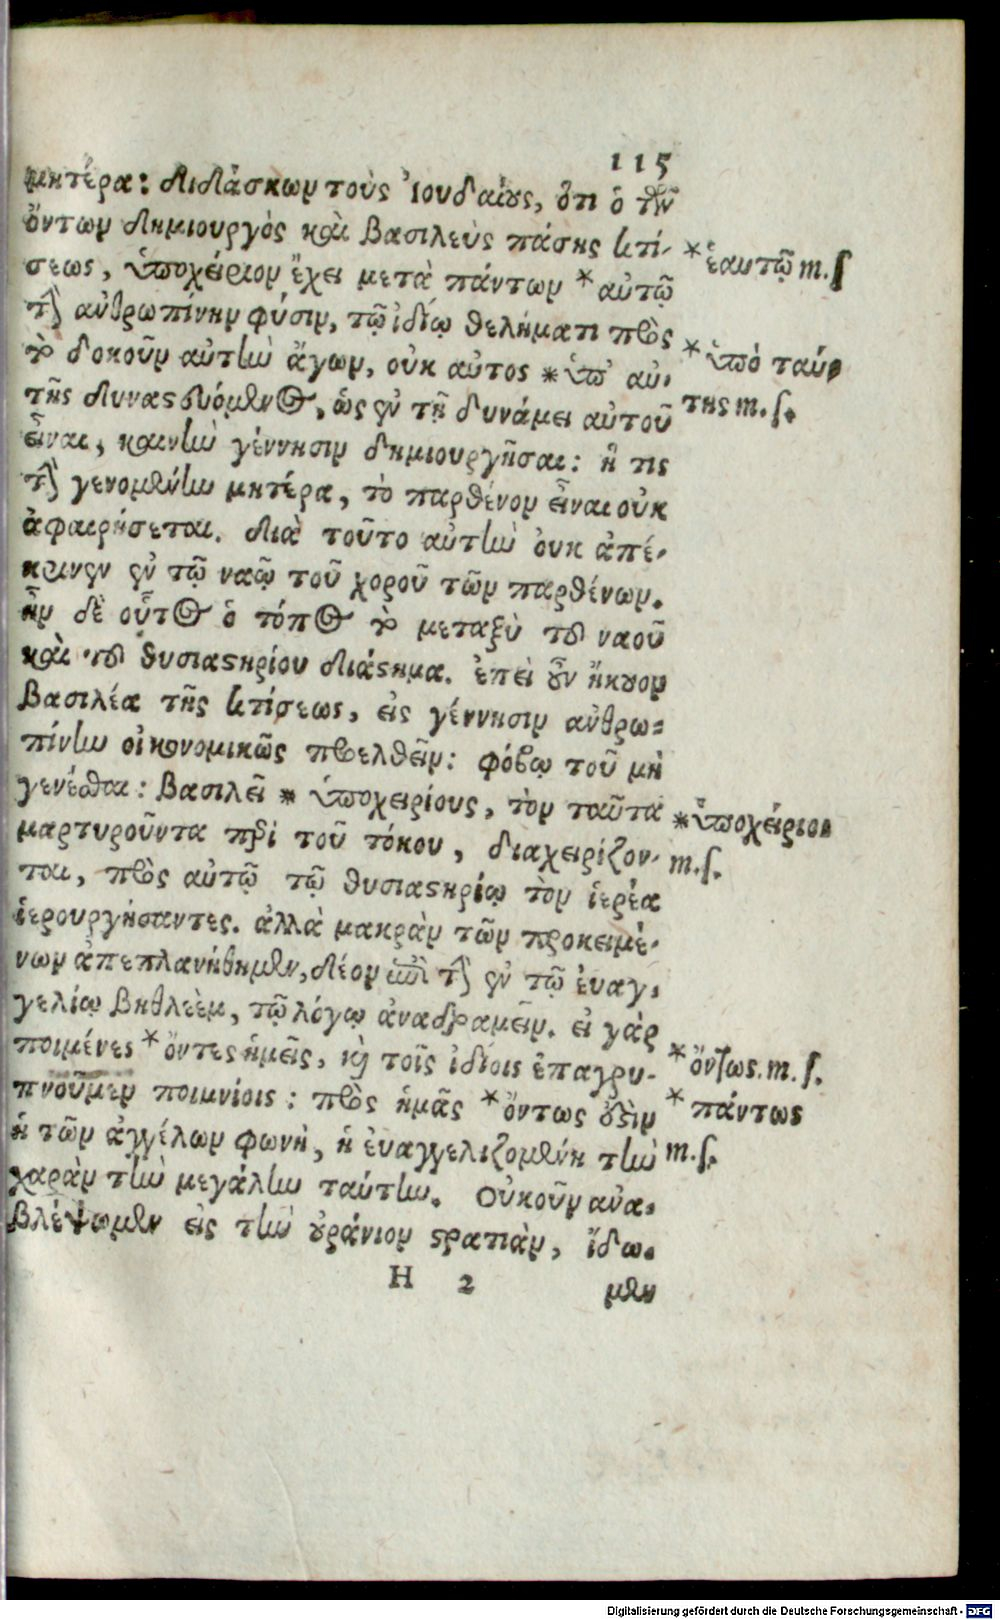 115
μητέρα: διδάσκων τοὺς Ἰουδαίους, ὅτι ὁ τῶν
ὄντων δημιουργὸς καὶ βασιλεὺς πάσης κτί-
σεως, ὑποχείριον ἔχει μετὰ πάντων * αὐτῷ
τὴν ἀνθρωπίνην φύσιν, τῷ ἰδίῳ θελήματι πρὸς
τὸ δοκοῦν αὐτὴν ἄγων, οὐκ αὐτος * ὑπ' αὐ-
τῆς δυναστευόμενος, ὡς ἐν τῇ δυνάμει αὐτοῦ
εἶναι, καινὴν γέννησιν δημιουργῆσαι: ἥ τις
τὴν γενομένην μητέρα, τὸ παρθένον εἶναι οὐκ
ἀφαιρήσεται. διὰ τοῦτο αὐτὴν ὀυκ ἀπέ-
κρινεν ἐν τῷ ναῷ τοῦ χοροῦ τῶν παρθένων.
ἦν δὲ οὗτος ὁ τόπος τὸ μεταξὺ τοῦ ναοῦ
καὶ τοῦ θυσιαστηρίου διάστημα. ἐπεὶ οὖν ἤκουον
βασιλέα τῆς κτίσεως, εἰς γέννησιν ἀνθρω-
πίνην οἰκονομικῶς προελθεῖν: φόβῳ τοῦ μὴ
γενέσθαι: βασιλεῖ * ὑποχειρίους, τὸν ταῦτα
μαρτυροῦντα περὶ τοῦ τόκου, διαχειρίζον-
ται, πρὸς αὐτῷ τῷ θυσιαστηρίῳ τὸν ἱερέα
ἱερουργήσαντες. ἀλλὰ μακρὰν τῶν προκειμέ-
νων ἀπεπλανήθημεν, δέον ἐπὶ τὴν ἐν τῷ ἐυαγ-
γελίῳ Βηθλεὲμ, τῷ λόγῳ ἀναδραμεῖν. εἰ γὰρ
ποιμένες * ὄντες ἡμεῖς, καὶ τοῖς ἰδίοις ἐπαγρυ-
πνοῦμεν ποιμνίοις: πρὸς ἡμᾶς * ὄντως ἐστὶν
ἡ τῶν ἀγγέλων φωνὴ, ἡ ἐυαγγελιζομένη τὴν
χαρὰν τὴν μεγάλην ταύτην. Οὐκοῦν ἀνα-
βλέψωμεν εἰς τὴν οὐράνιον στρατιὰν, ἴδω-
H 2 μεν
* ἑαυτῷ m.s
* ὑπὸ ταύ-
της m.s.
* ὑποχείριοι
m.s.
* ὄντως. m.s.
* πάντως
m.s.
Digitalisierung gefördert durch die Deutsche Forschungsgemeinschaft - DFG